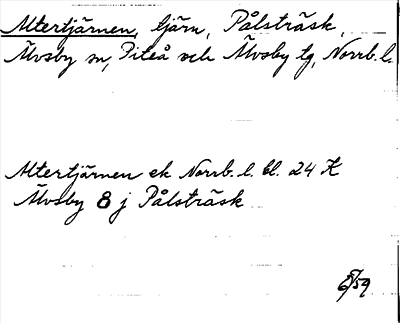 Altertjärnen, tjärn, Pålsträsk,
Älvsby sn, Piteå och Älvsby tg, Norrb. l.
Altertjärnen ek Norrb. l. bl. 24 K
Älvsby 8 j Pålsträsk
/59